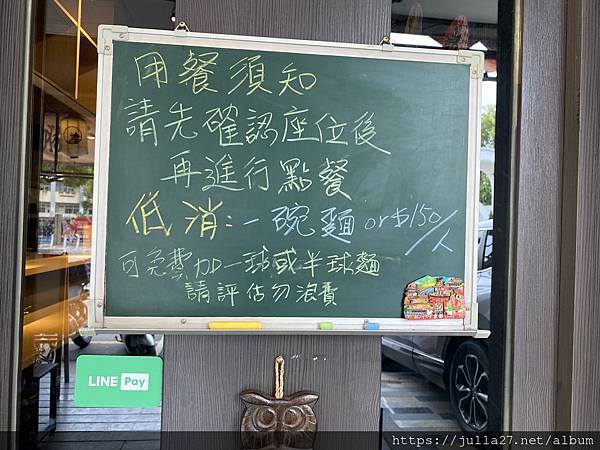 用餐須知
請先確認座位後
再進行點餐
低消:一碗麵 or $150/人
可免費加一球或半球麵
請評估勿浪費
LINE Pay
https://julla27.net/album